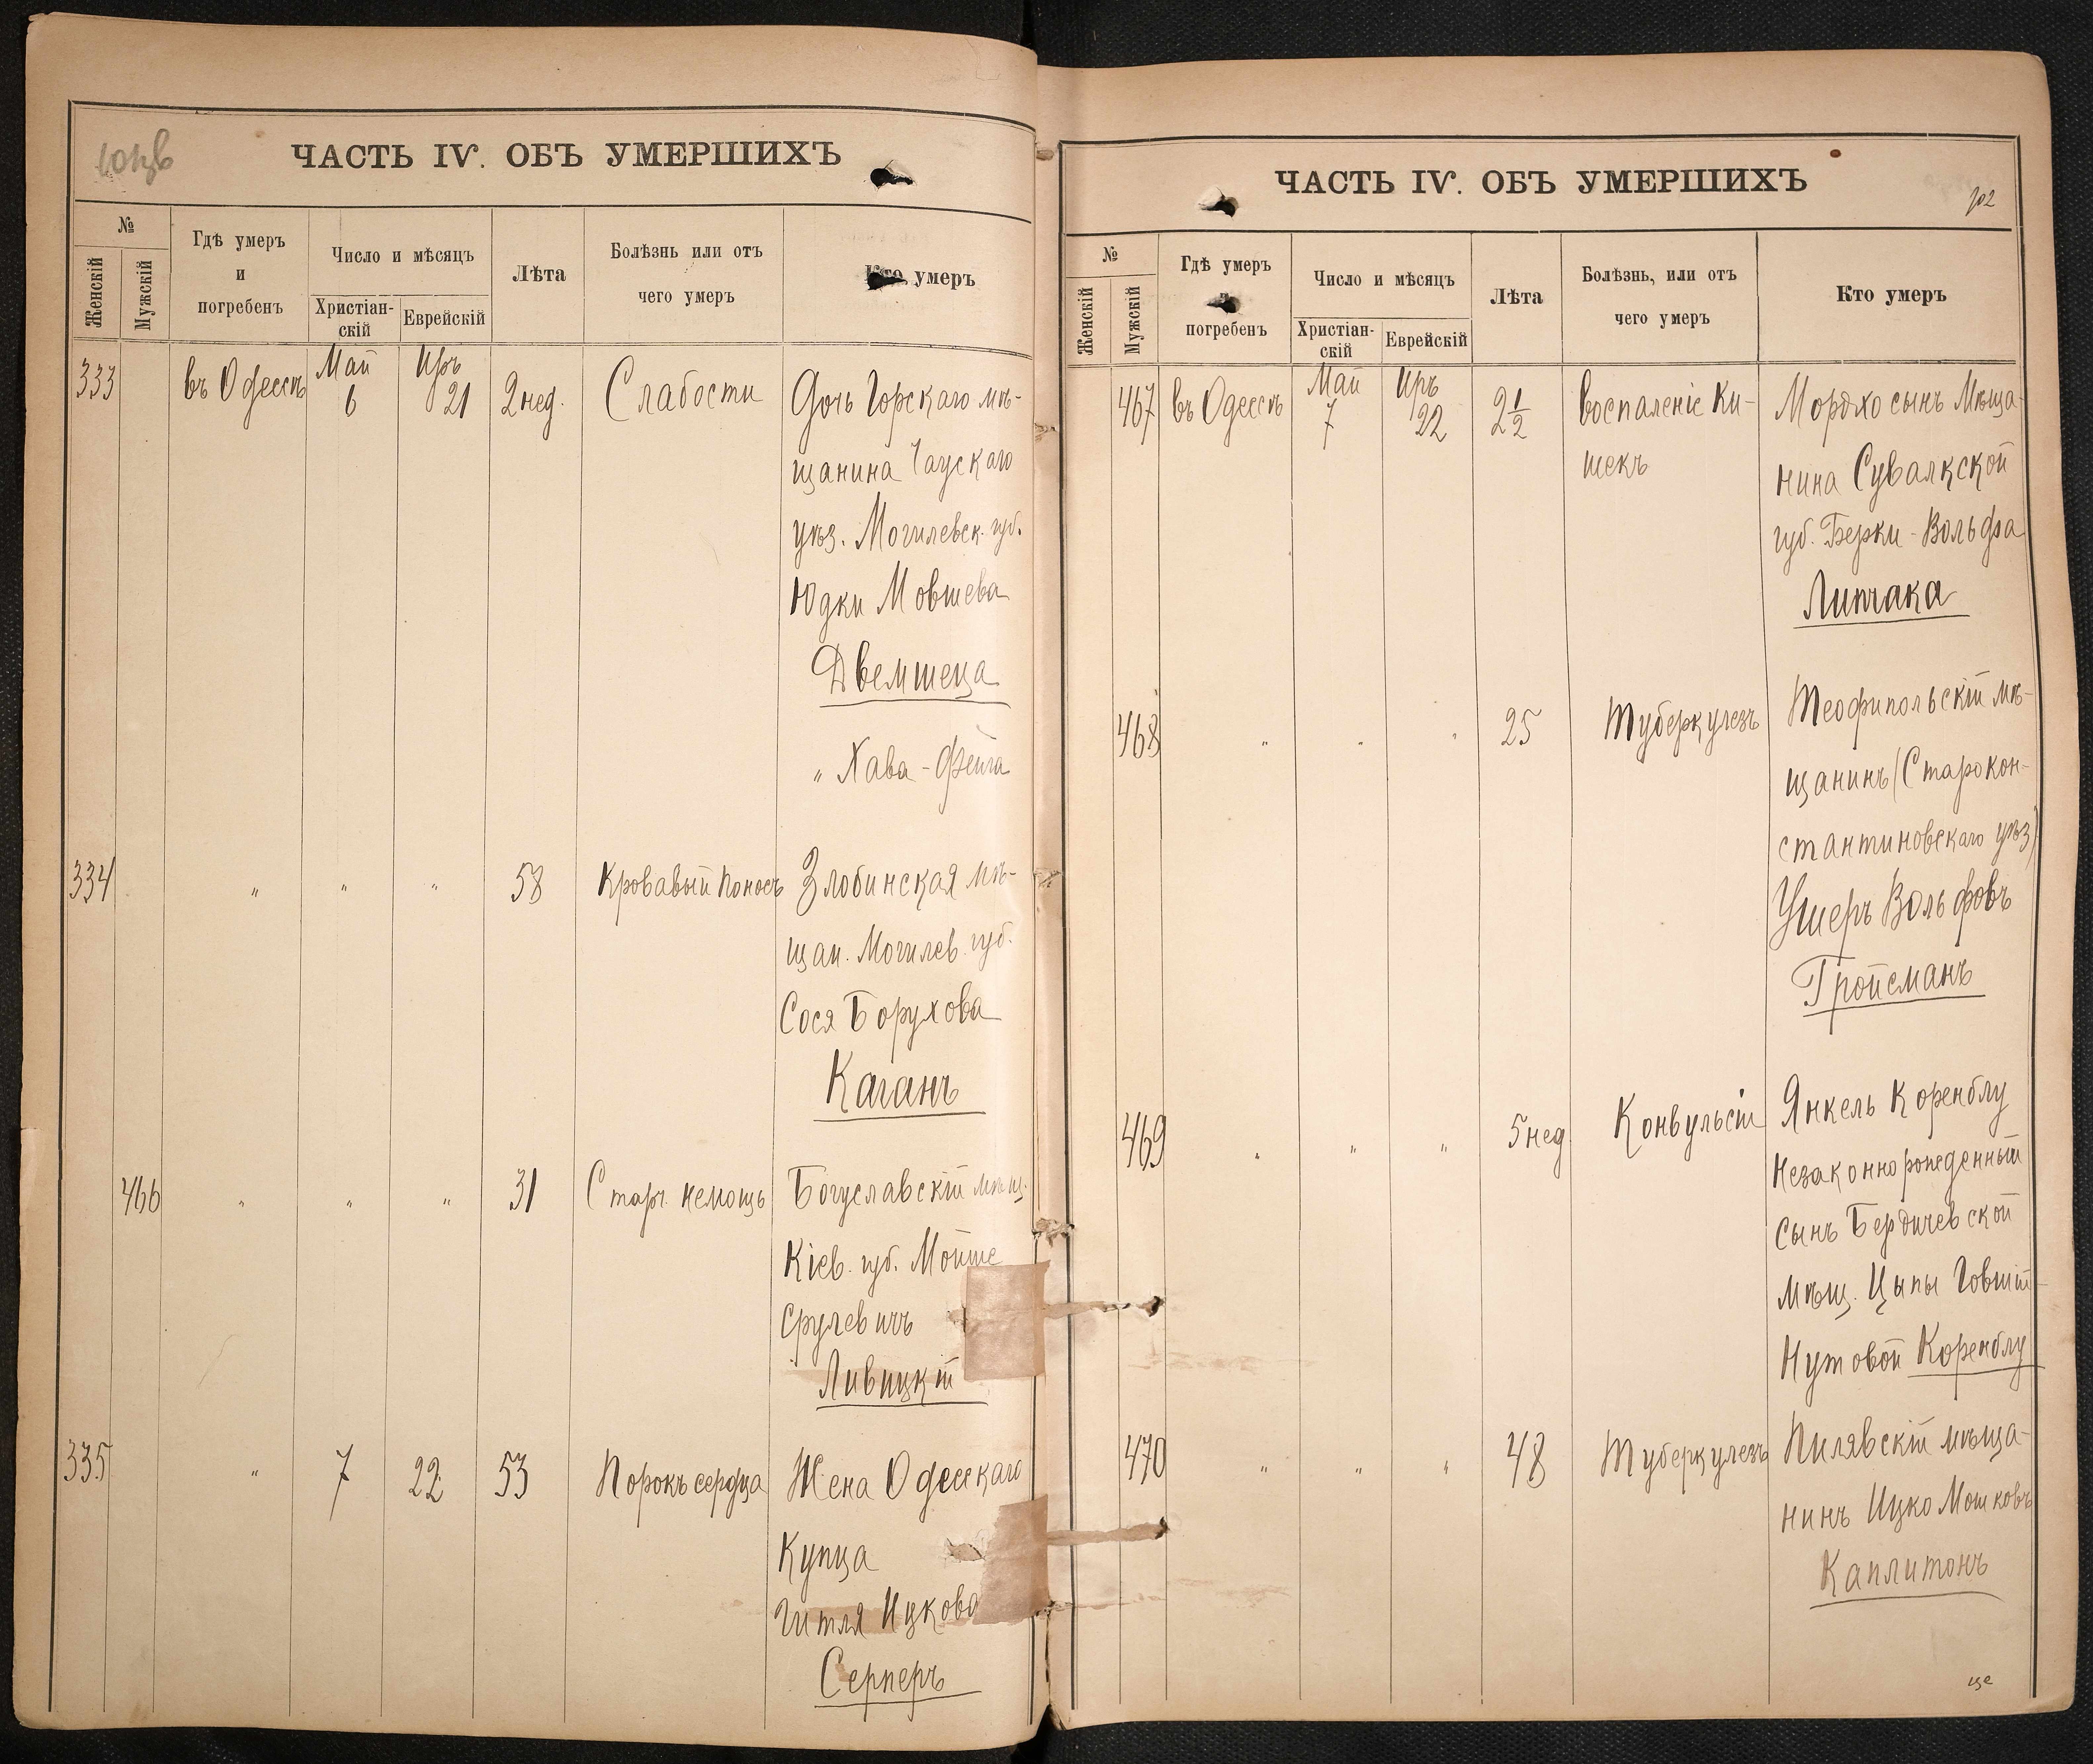 ЧАСТЬ IV. ОБЪ УМЕРШИХЪ
№
Женскій
Мужскій
Гдѣ умеръ
и
погребенъ
Число и мѣсяцъ
Христіан-
скій
Еврейскій
Лѣта
Болѣзнь или отъ
чего умеръ
Кто умеръ
333 въ Одессѣ Май 6 Иръ 21 2 нед. Слабости Дочь Горскаго мѣ-
щанина Чаускаго
уѣз. Могилевск. губ.
Юдки Мовшева
Двемшеца
" Хава-Фейга
334 " " " 58 Кровавый поносъ Злобинская мѣ-
щан. Могилев. губ.
Сося Борухова
Каганъ
466 " " " 31 Старч. немощь Богуславскій мѣщ.
Кіев. губ. Мойше
Срулевичъ
Ливицкій
335 " 7 22 53 Порокъ сердца Жена Одесскаго
Купца
Гитля Ицкова
Серперъ
ЧАСТЬ IV. ОБЪ УМЕРШИХЪ
№
Женскій
Мужскій
Гдѣ умеръ
и
погребенъ
Число и мѣсяцъ
Христіан-
скій
Еврейскій
Лѣта
Болѣзнь, или отъ
чего умеръ
Кто умеръ
467 въ Одессѣ Май 7 Иръ 22 2½ Воспаленіе Ки- Мордхо сынъ Мѣща-
шекъ нина Сувалкской
губ. Берки-Вольфа
Липчака
468 " " " 25 Туберкулезъ Теофипольскій мѣ-
щанинъ (Старокон-
стантиновскаго уѣз)
Ушеръ Вольфовъ
Гройсманъ
469 " " " 5 нед. Конвульсіи Янкель Коренблу
Незаконнорожденный
сынъ Бердичевской
мѣщ. Ципы Говшій-
Нутовой Коренблу
470 " " " 48 Туберкулезъ Пилявскій мѣща-
нинъ Ицко Мошковъ
Каплитонъ